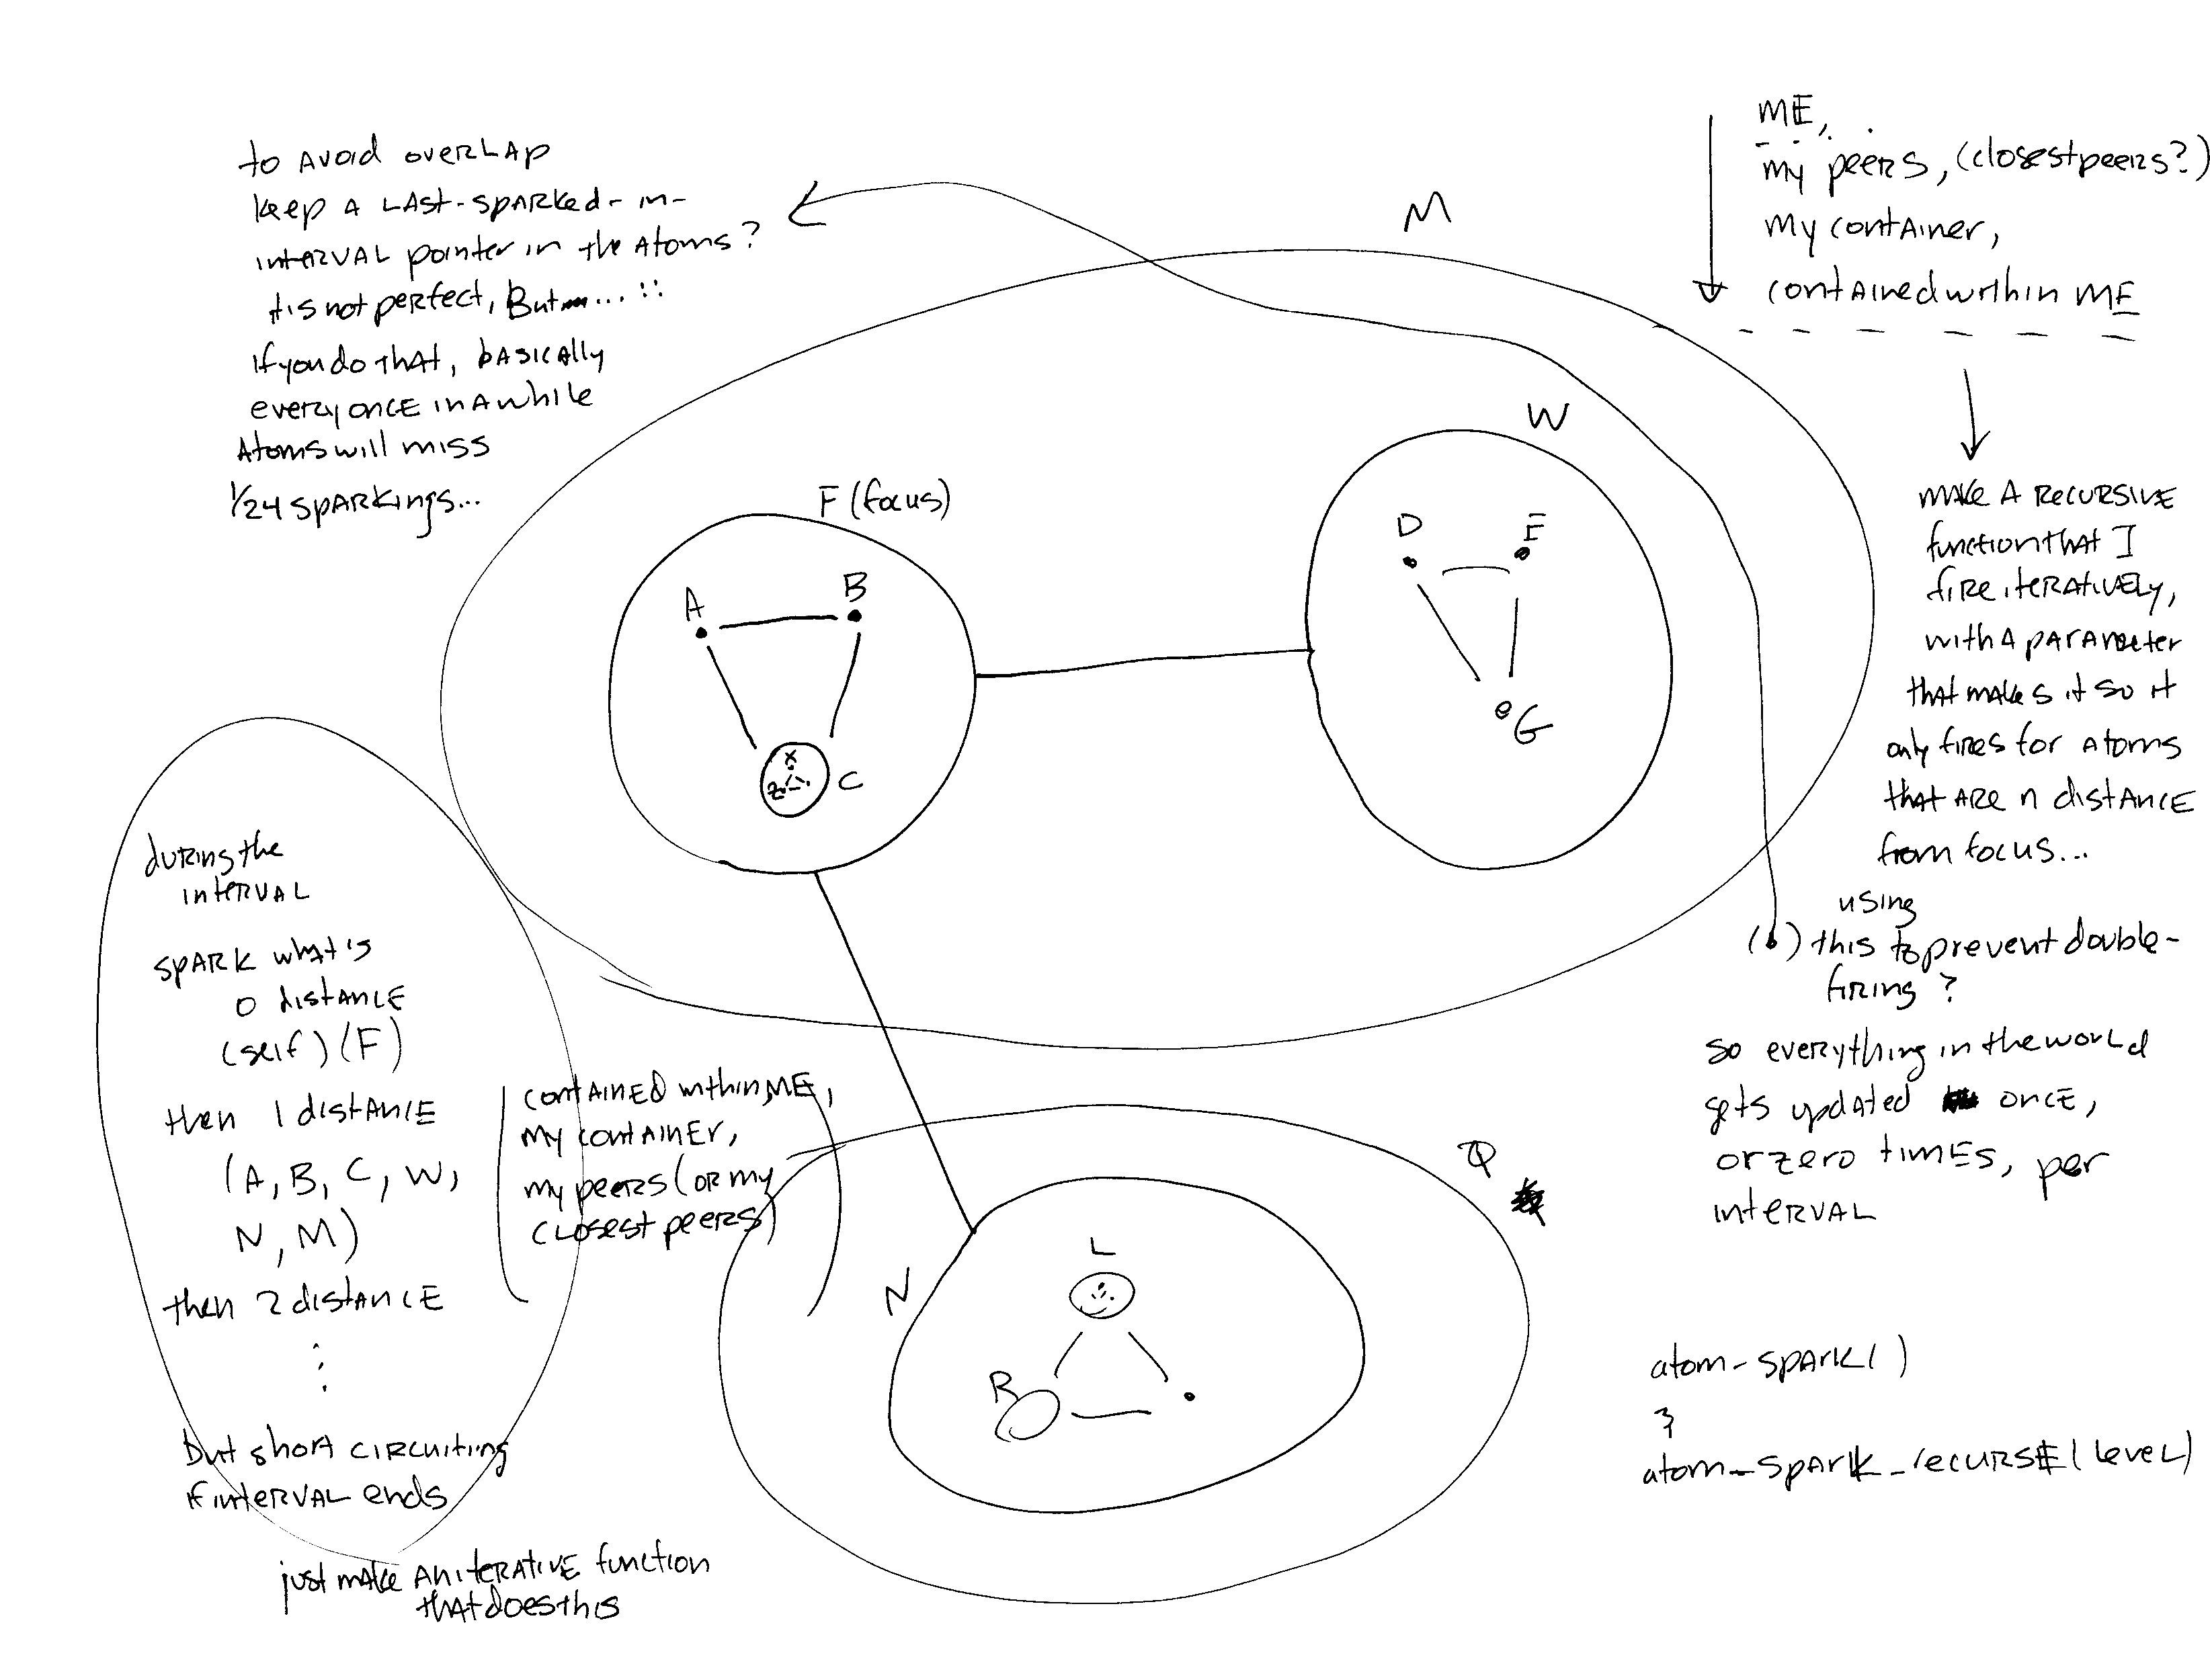 to avoid overlap
keep a last-sparked-in-
interval pointer in the atoms?
tis not perfect, But... ::
if you do that, basically
every once in a while
Atoms will miss
1/24 sparkings...
ME,
my peers, (closest peers?)
my container,
contained within ME
make a recursive
function that I
fire iteratively,
with a parameter
that makes it so it
only fires for atoms
that are n distance
from focus...
using
( ) this to prevent double-
firing?
so everything in the world
gets updated once,
or zero times, per
interval
atom-spark()
}
atom-spark-recurse(level)
M
W
D
E
G
F (focus)
A
B
X
Z
C
during the
interval
spark what is
0 distance
(self) (F)
then 1 distance
(A, B, C, W,
N, M)
then 2 distance
⋮
but short circuiting
if interval ends
contained within ME,
my container,
my peers (or my
closest peers)
Q
N
L
R
just make an iterative function
that does this